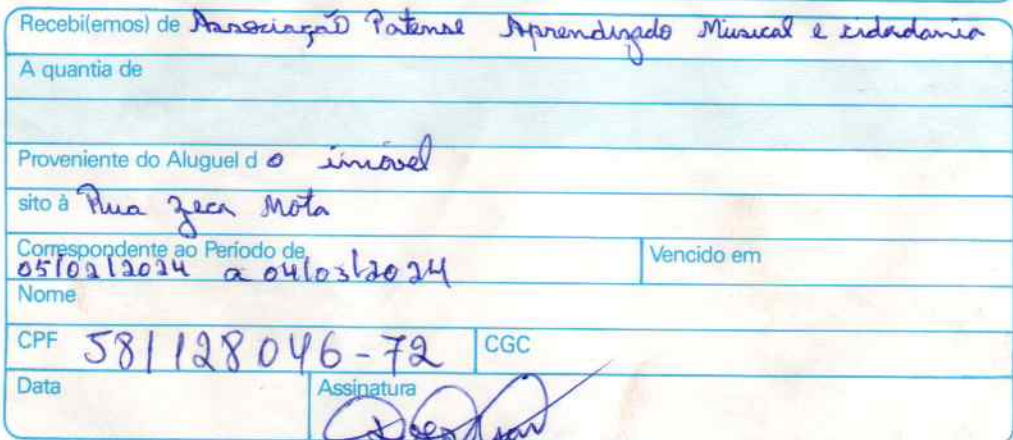 Recebi(emos) de Associação Patense Aprendizado Musical e cidadania
A quantia de
Proveniente do Aluguel d o imóvel
sito à Rua Zeca Mota
Correspondente ao Período de Vencido em
05/02/2024 a 04/03/2024
Nome
CPF 581128046-72 CGC
Data Assinatura